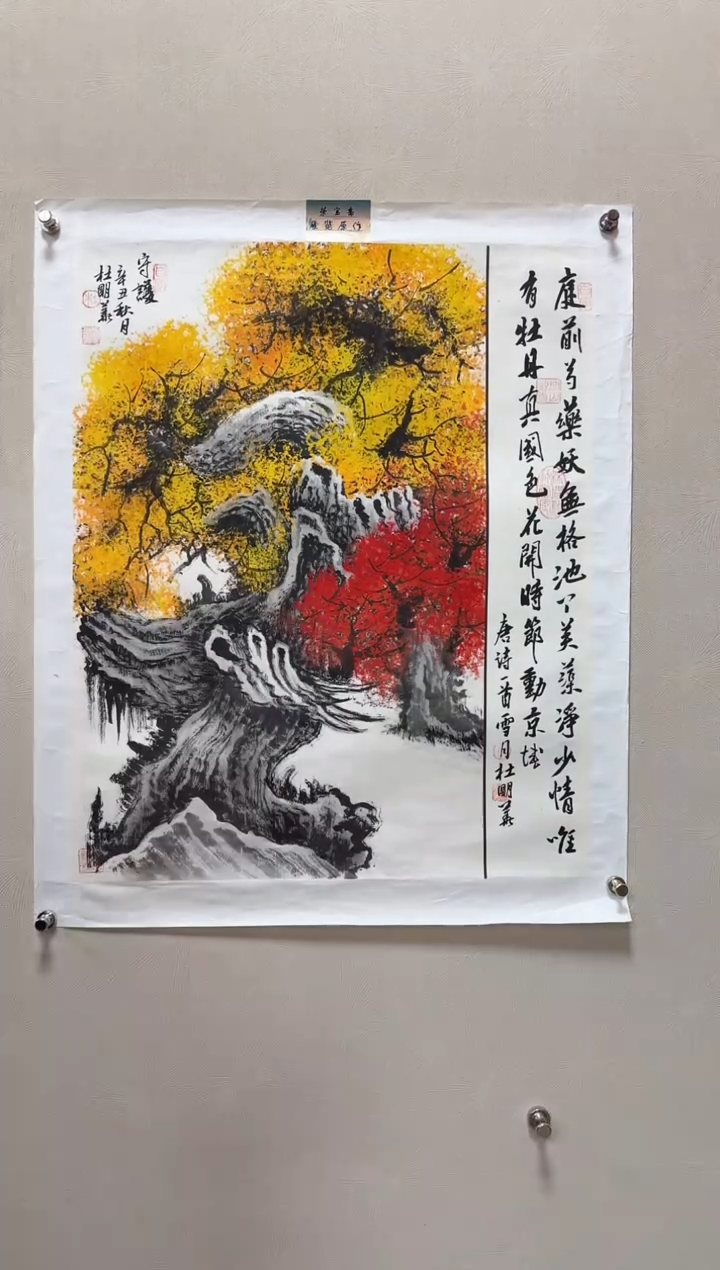 庭前芍藥妖無格池上芙蕖淨少情唯
有牡丹真國色花開時節動京城
唐诗一首雪月杜明義
守護
辛丑秋月
杜明義